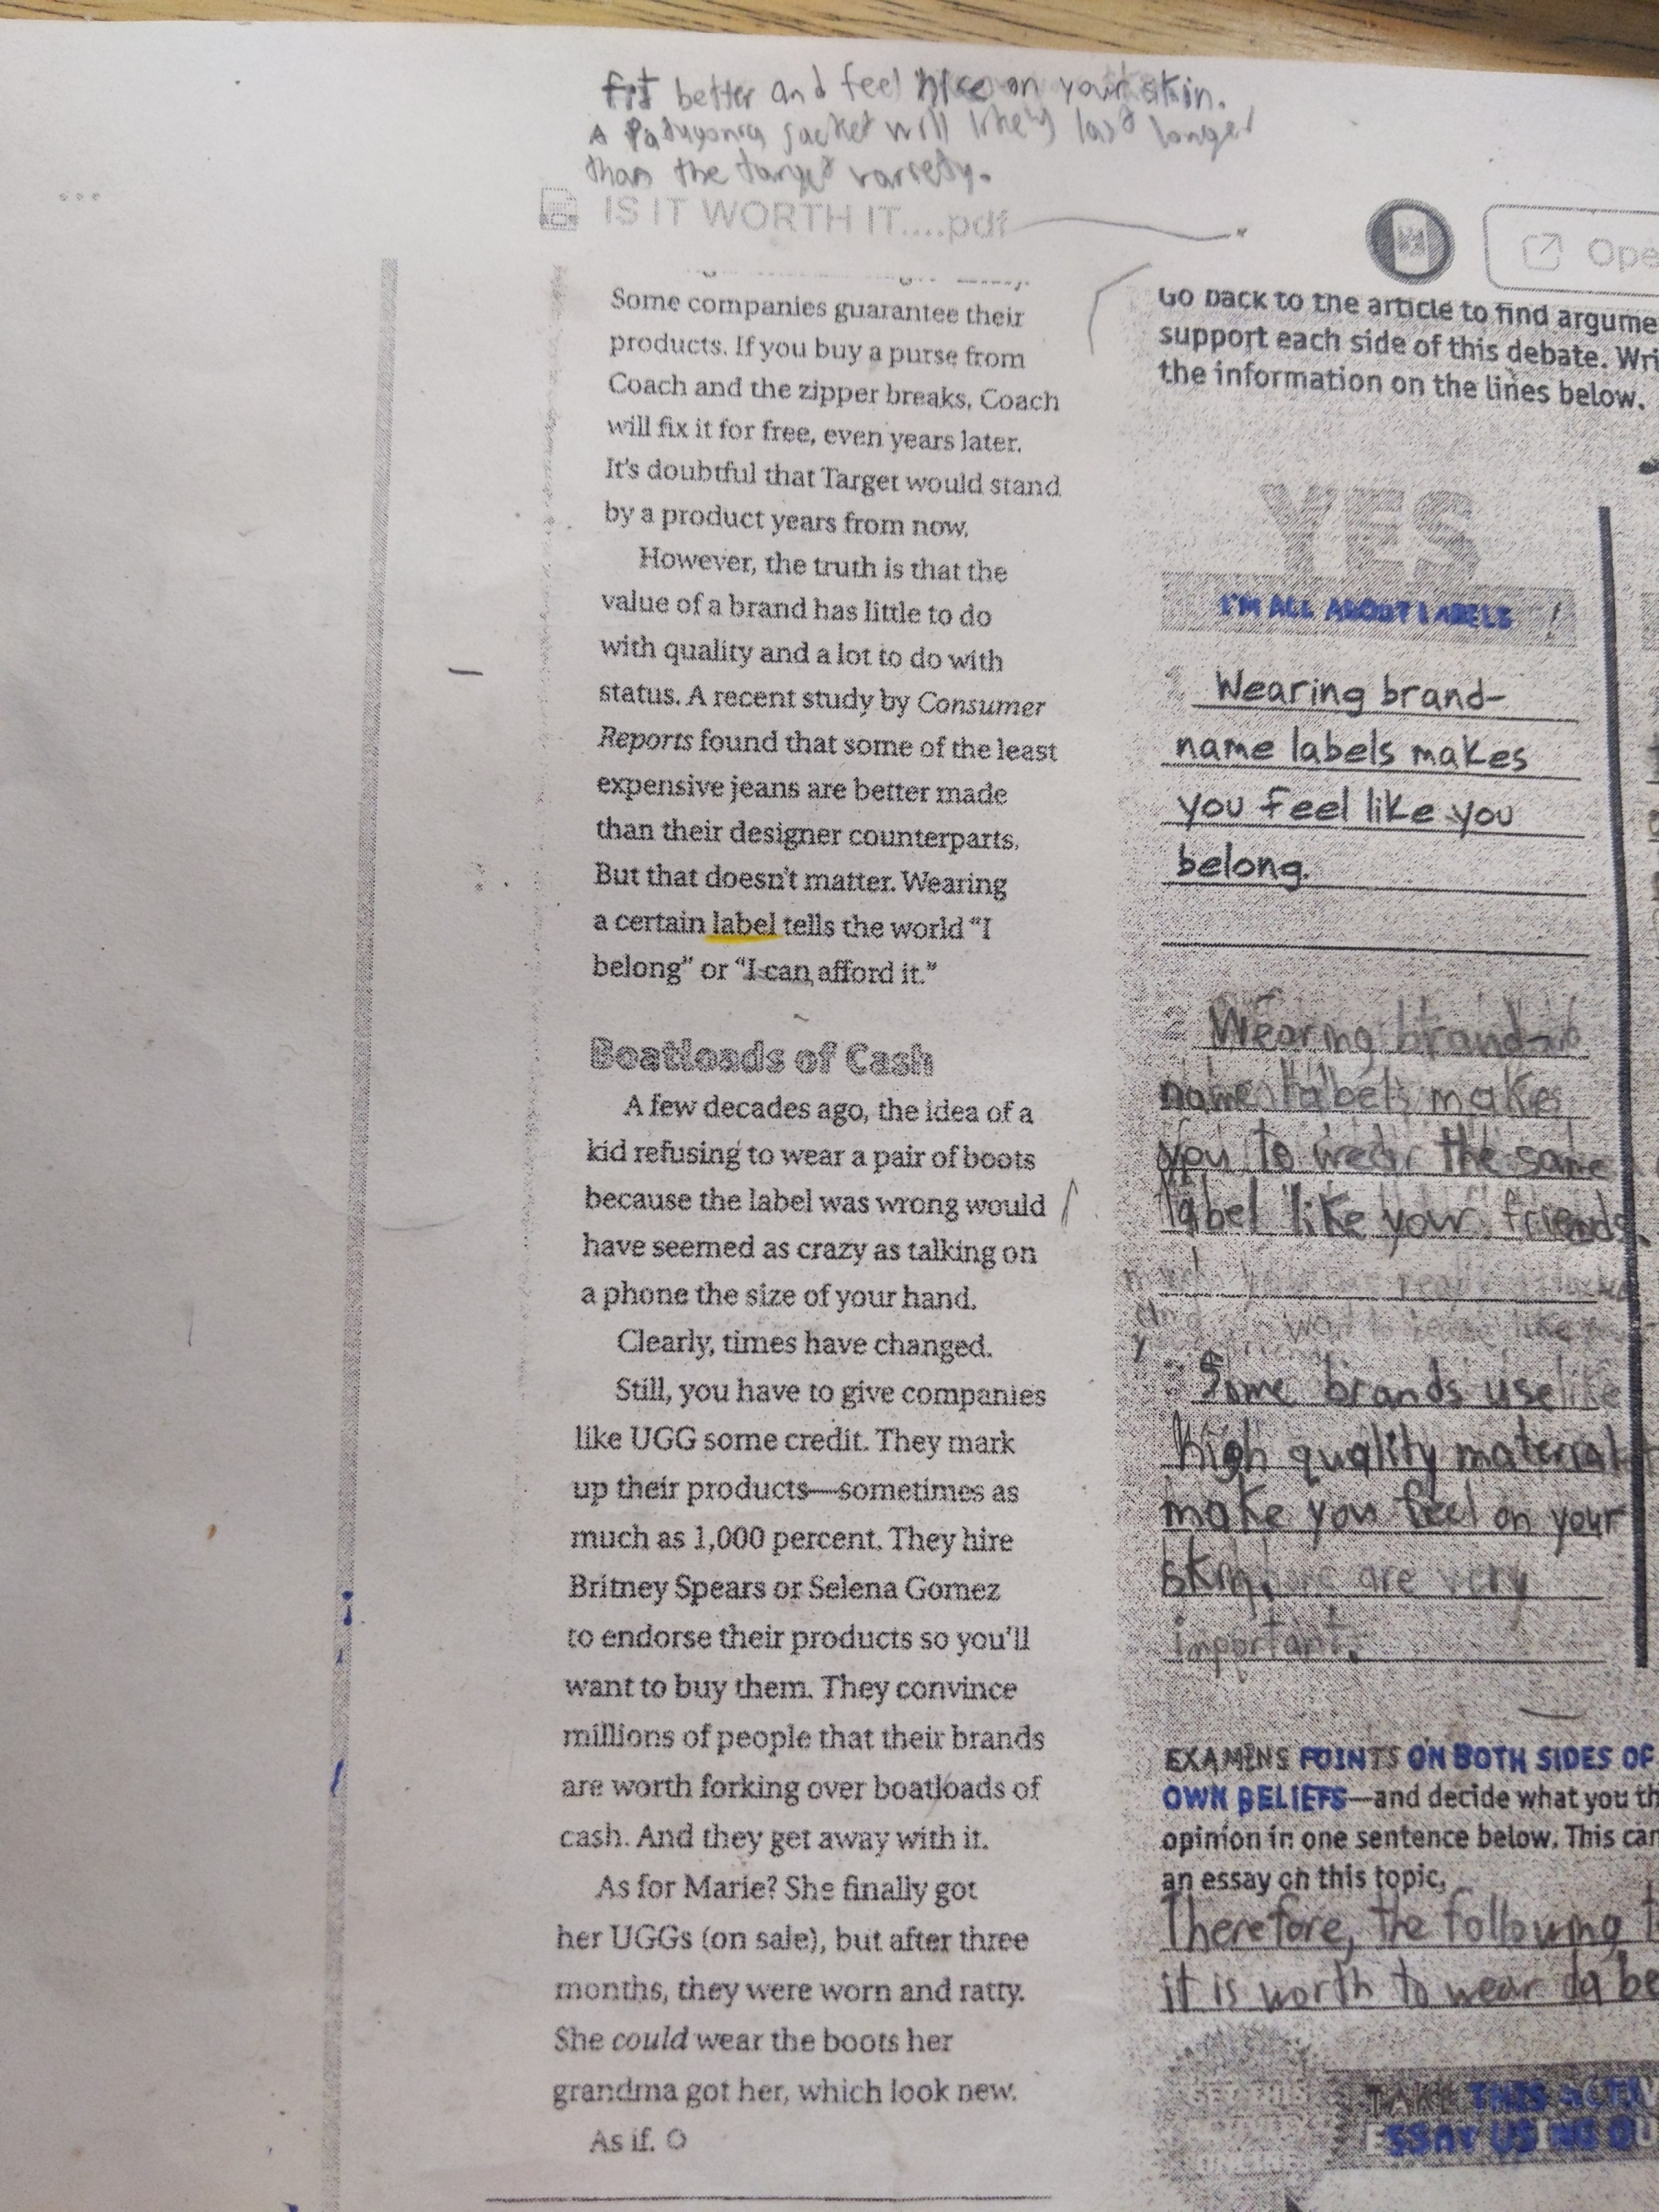 fit better and feel nice on your skin.
A Patagonia jacket will likely last longer
than the target variety.
IS IT WORTH IT....pdf
Ope
Some companies guarantee their
products. If you buy a purse from
Coach and the zipper breaks, Coach
will fix it for free, even years later.
It's doubtful that Target would stand
by a product years from now.
However, the truth is that the
value of a brand has little to do
with quality and a lot to do with
status. A recent study by Consumer
Reports found that some of the least
expensive jeans are better made
than their designer counterparts.
But that doesn't matter. Wearing
a certain label tells the world "I
belong" or "I can afford it."
Boatloads of Cash
A few decades ago, the idea of a
kid refusing to wear a pair of boots
because the label was wrong would
have seemed as crazy as talking on
a phone the size of your hand.
Clearly, times have changed.
Still, you have to give companies
like UGG some credit. They mark
up their products—sometimes as
much as 1,000 percent. They hire
Britney Spears or Selena Gomez
to endorse their products so you'll
want to buy them. They convince
millions of people that their brands
are worth forking over boatloads of
cash. And they get away with it.
As for Marie? She finally got
her UGGs (on sale), but after three
months, they were worn and ratty.
She could wear the boots her
grandma got her, which look new.
As if.
Go back to the article to find argume
support each side of this debate. Wri
the information on the lines below.
YES
I'M ALL ABOUT LABELS !
1. Wearing brand-
name labels makes
you feel like you
belong.
2. Wearing brand-
name labels makes
you to wear the same
label like your friends.
Some brands use like
high quality material
make you feel on your
skin, are very
important.
EXAMINS POINTS ON BOTH SIDES OF
OWN BELIEFS—and decide what you th
opinion in one sentence below. This can
an essay on this topic.
Therefore, the following
it is worth to wear
TAKE THIS ACTIV
ESSAY USING OU